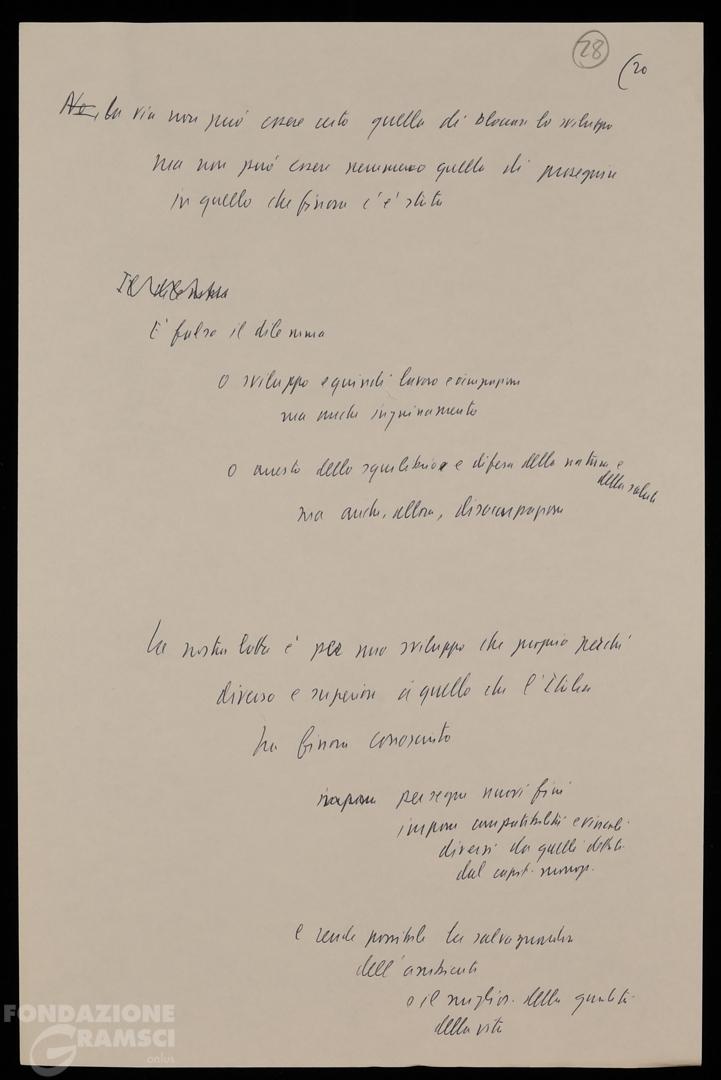 28
(20
No, La via non può essere certo quella di bloccare lo sviluppo
ma non può essere nemmeno quella di proseguire
in quello che finora c'è stato
Il dilemma
E' falso il dilemma
o sviluppo e quindi lavoro e occupazione
ma anche inquinamento
o arresto dello squilibrio e difesa della natura e
della salute
ma anche, allora, disoccupazione
La nostra lotta è per uno sviluppo che proprio perché
diverso e superiore a quello che l'Italia
ha finora conosciuto
impone persegue nuovi fini
impone compatibilità e vincoli
diversi da quelli dettati
dal capit. monop.
e rende possibile la salvaguardia
dell'ambiente
e il miglior. della qualità
della vita
FONDAZIONE
GRAMSCI
onlus